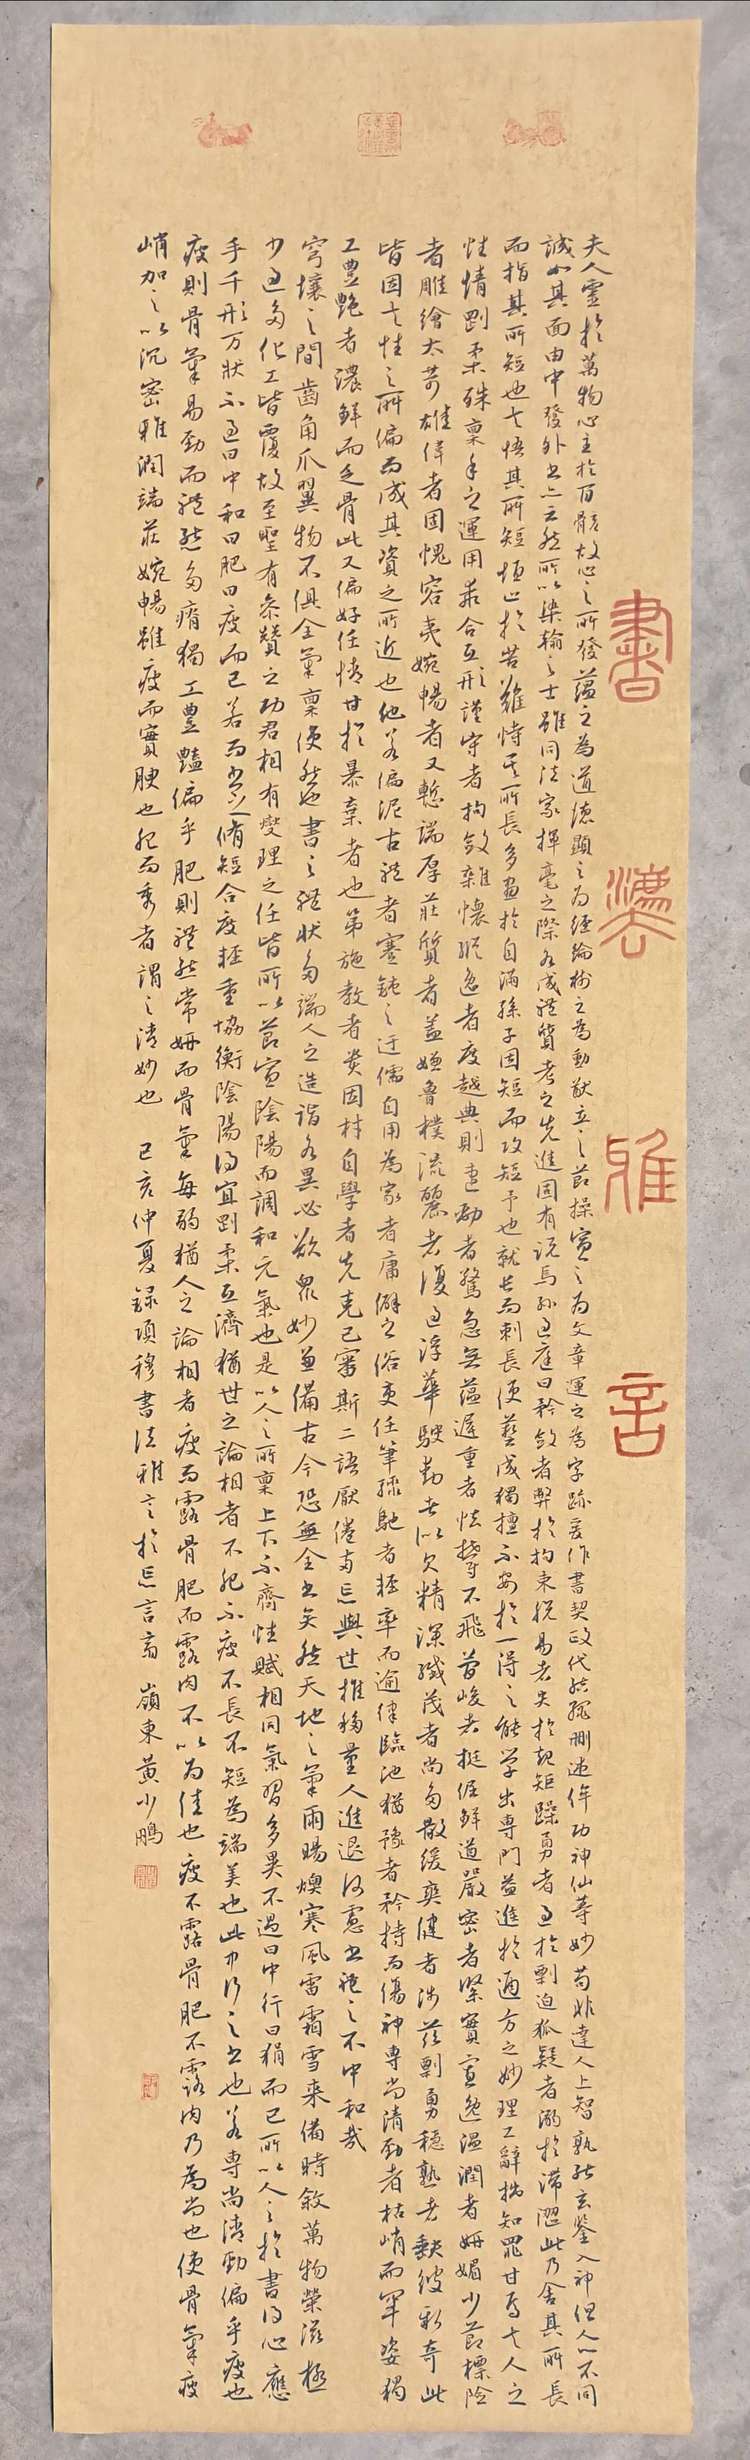 書灋雅言
夫人靈於萬物心主於百骸故心之所發蘊之為道德顯之為經綸樹之為勳猷立之為節操宣之為文章運之為字跡爰作書契政代結繩刪述侔功神仙等妙苟非達人上智孰能玄鑒入神但人心不同
誠如其面由中發外書亦云然所以染翰之士雖同法家揮毫之際各成體質考之先進固有說焉孫過庭曰矜斂者弊於拘束脫易者失於規矩躁勇者過於剽迫狐疑者溺於滯澀此乃舍其所長
而指其所短也夫悟其所短恒止於苦難恃其所長多畫於自滿孫子因短而攻短予也就長而刺長使藝成獨擅不安於一得之能學出專門益進於通方之妙理工辭拙知罪甘焉夫人之
性情剛柔殊稟手之運用乖合互形謹守者拘斂雜懷縱逸者度越典則速勁者驚急無蘊遲重者怯鬱不飛簡峻者挺倔鮮遒嚴密者緊實寡逸溫潤者妍媚少節標險
者雕繪太苛雄偉者固愧容夷婉暢者又慙端厚莊質者蓋嫌魯樸流麗者復過浮華駛動者似欠精深纖茂者尚多散緩爽健者涉茲剽勇穩熟者缺彼新奇此
皆因夫性之所偏而成其資之所近也他若偏泥古體者蹇鈍之迂儒自用為家者庸僻之俗吏任筆驟馳者輕率而逾律臨池猶豫者矜持而傷神專尚清勁者枯峭而罕姿獨
工豐艷者濃鮮而乏骨此又偏好任情甘於暴棄者也第施教者貴因材自學者先克己審斯二語厭倦兩忘與世推移量人進退何慮書體之不中和哉
穹壤之間齒角爪翼物不俱全氣稟使然也書之體狀多端人之造詣各異必欲眾妙兼備古今恐無全書矣然天地之氣雨暘燠寒風雷霜雪來備時敘萬物榮滋極
少過多化工皆覆故至聖有參贊之功君相有燮理之任皆所以節宣陰陽而調和元氣也是以人之所稟上下不齊性賦相同氣習多異不過曰中行曰狷而已所以人之於書得心應
手千形万狀不過曰中和曰肥曰瘦而已若而書也脩短合度輕重協衡陰陽得宜剛柔互濟猶世之論相者不肥不瘦不長不短為端美也此中行之書也若專尚清勁偏乎瘦也
瘦則骨氣易勁而體態多瘠獨工豐豔偏乎肥則體態常妍而骨氣每弱猶人之論相者瘦而露骨肥而露肉不以為佳也瘦不露骨肥不露肉乃為尚也使骨氣瘦
峭加之以沉密雅潤端莊婉暢雖瘦而實腴也肥而秀者謂之清妙也 己亥仲夏錄項穆書法雅言於忘言齋 嶺東黃少鵬